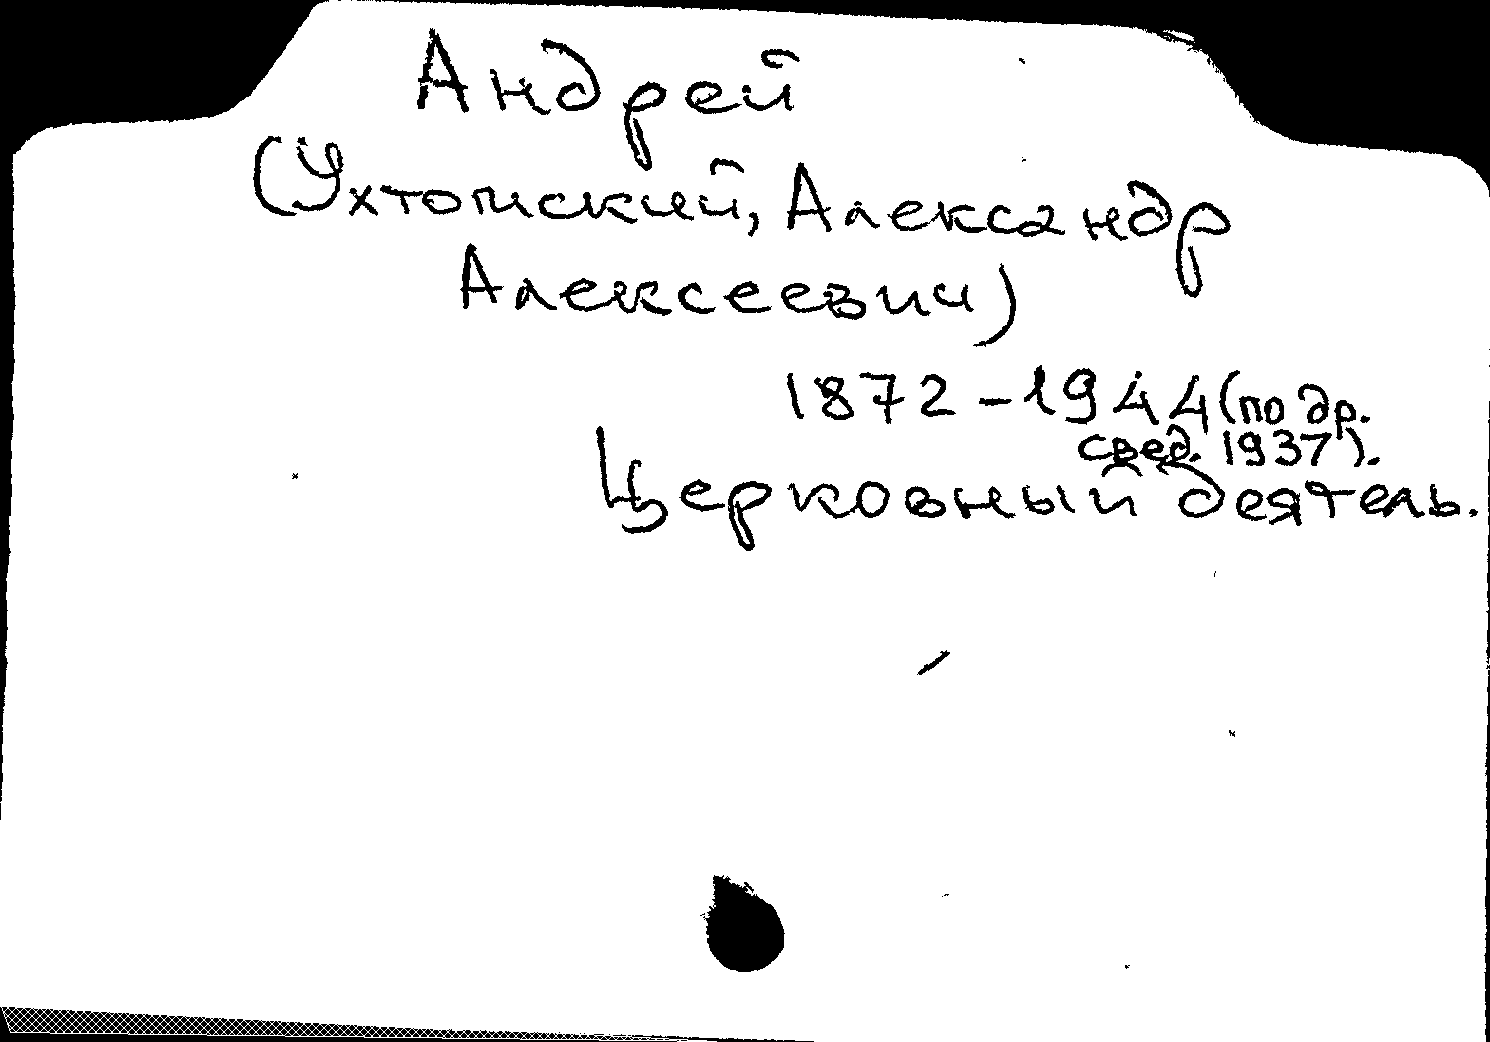 Андрей
(Ухтомский, Александр
Алексеевич)
1872-1944 (по др.
свед. 1937).
Церковный деятель.